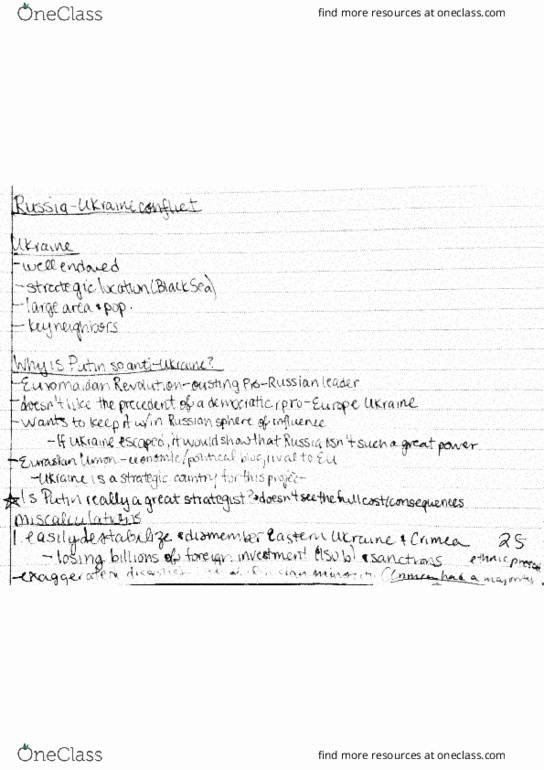 OneClass
find more resources at oneclass.com
Russia-Ukraine conflict
Ukraine
- well endowed
- strategic location (Black Sea)
- large area & pop.
- key neighbors
Why is Putin so anti-Ukraine?
- Euromaidan Revolution - ousting Pro-Russian leader
- doesn't like the precedent of a democratic/pro-Europe Ukraine
- Wants to keep it w/in Russian sphere of influence
- If Ukraine escaped, it would show that Russia isn't such a great power
- Eurasian Union - economic/political bloc, rival to EU
- Ukraine is a strategic country for this project
☆ Is Putin really a great strategist? → doesn't see the full cost/consequences
miscalculations
1. easily destabilize & dismember Eastern Ukraine & Crimea 25
- losing billions of foreign investment (150 b) & sanctions ethnic
- (Crimea had a majority
OneClass
find more resources at oneclass.com